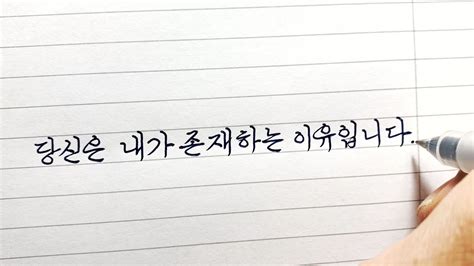 당신은 내가 존재하는 이유입니다.